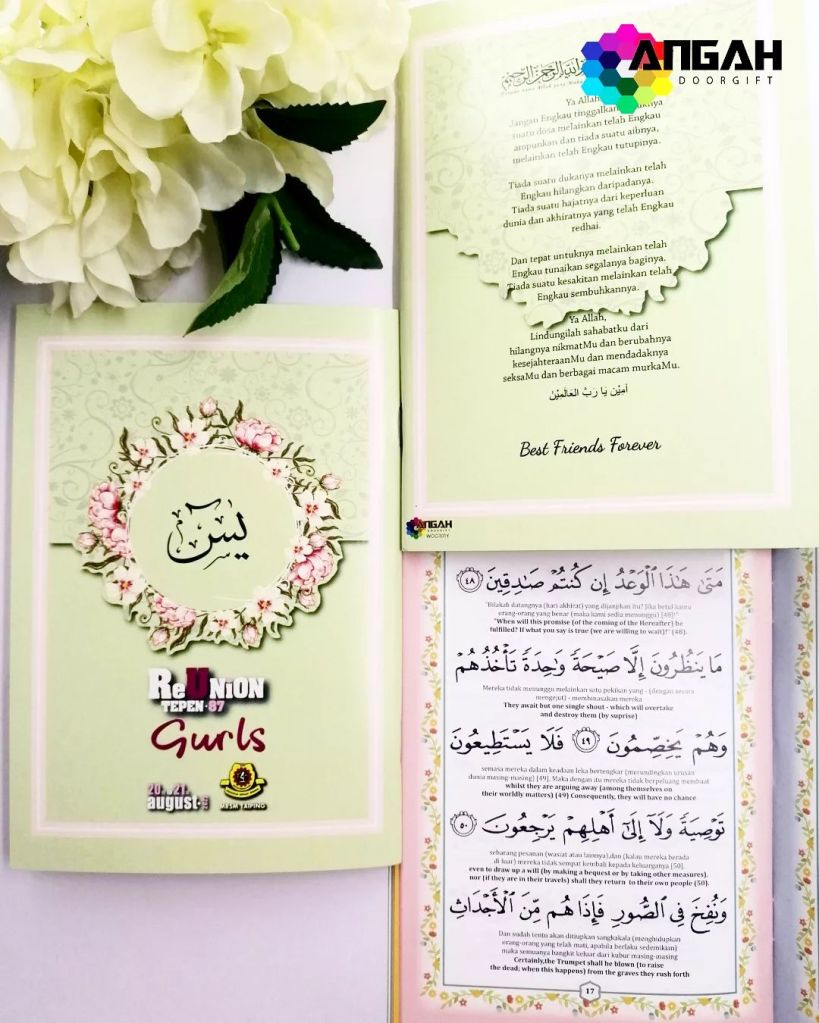 ANGAH
DOORGIFT
Ya Allah
Jangan Engkau tinggalkan
suatu dosa melainkan telah Engkau
ampunkan dan tiada suatu aibnya,
melainkan telah Engkau tutupinya.
Tiada suatu dukanya melainkan telah
Engkau hilangkan daripadanya.
Tiada suatu hajatnya dari keperluan
dunia dan akhiratnya yang telah Engkau
redhai.
Dan tepat untuknya melainkan telah
Engkau tunaikan segalanya baginya.
Tiada suatu kesakitan melainkan telah
Engkau sembuhkannya.
Ya Allah,
Lindungilah sahabatku dari
hilangnya nikmatMu dan berubahnya
kesejahteraanMu dan mendadaknya
seksaMu dan berbagai macam murkaMu.
اٰمِيْن يَا رَبَّ العَالَمِيْنَ
Best Friends Forever
ANGAH
يس
ReUNiON
TEPEN·87
Gurls
20 21
august
MRSM TAIPING
مَتَىٰ هَٰذَا ٱلْوَعْدُ إِن كُنتُمْ صَٰدِقِينَ ٤٨
"Bilakah datangnya (hari akhirat) yang dijanjikan itu? Jika betul kamu
orang-orang yang benar (maka kami sedia menunggu) [48]!"
"When will this promise (of the coming of the Hereafter) be
fulfilled? If what you say is true (we are willing to wait)!" (48).
مَا يَنظُرُونَ إِلَّا صَيْحَةً وَٰحِدَةً تَأْخُذُهُمْ
Mereka tidak menunggu melainkan satu pekikan yang - (dengan secara
mengejut) - membinasakan mereka
They await but one single shout - which will overtake
and destroy them (by suprise)
وَهُمْ يَخِصِّمُونَ ٤٩ فَلَا يَسْتَطِيعُونَ
semasa mereka dalam keadaan leka bertengkar (merundingkan urusan
dunia masing-masing) [49]. Maka dengan itu mereka tidak berpeluang membuat
whilst they are arguing away (among themselves on
their worldly matters) (49) Consequently, they will have no chance
تَوْصِيَةً وَلَآ إِلَىٰٓ أَهْلِهِمْ يَرْجِعُونَ ٥٠
sebarang pesanan (wasiat atau lainnya),dan (kalau mereka berada
di luar) mereka tidak sempat kembali kepada keluarganya [50].
even to draw up a will (by making a bequest or by taking other measures),
nor (if they are in their travels) shall they return to their own people (50).
وَنُفِخَ فِى ٱلصُّورِ فَإِذَا هُم مِّنَ ٱلْأَجْدَاثِ
Dan sudah tentu akan ditiupkan sangkakala (menghidupkan
orang-orang yang telah mati, apabila berlaku sedemikian)
maka semuanya bangkit keluar dari kubur masing-masing
Certainly,the Trumpet shall be blown (to raise
the dead; when this happens) from the graves they rush forth
17